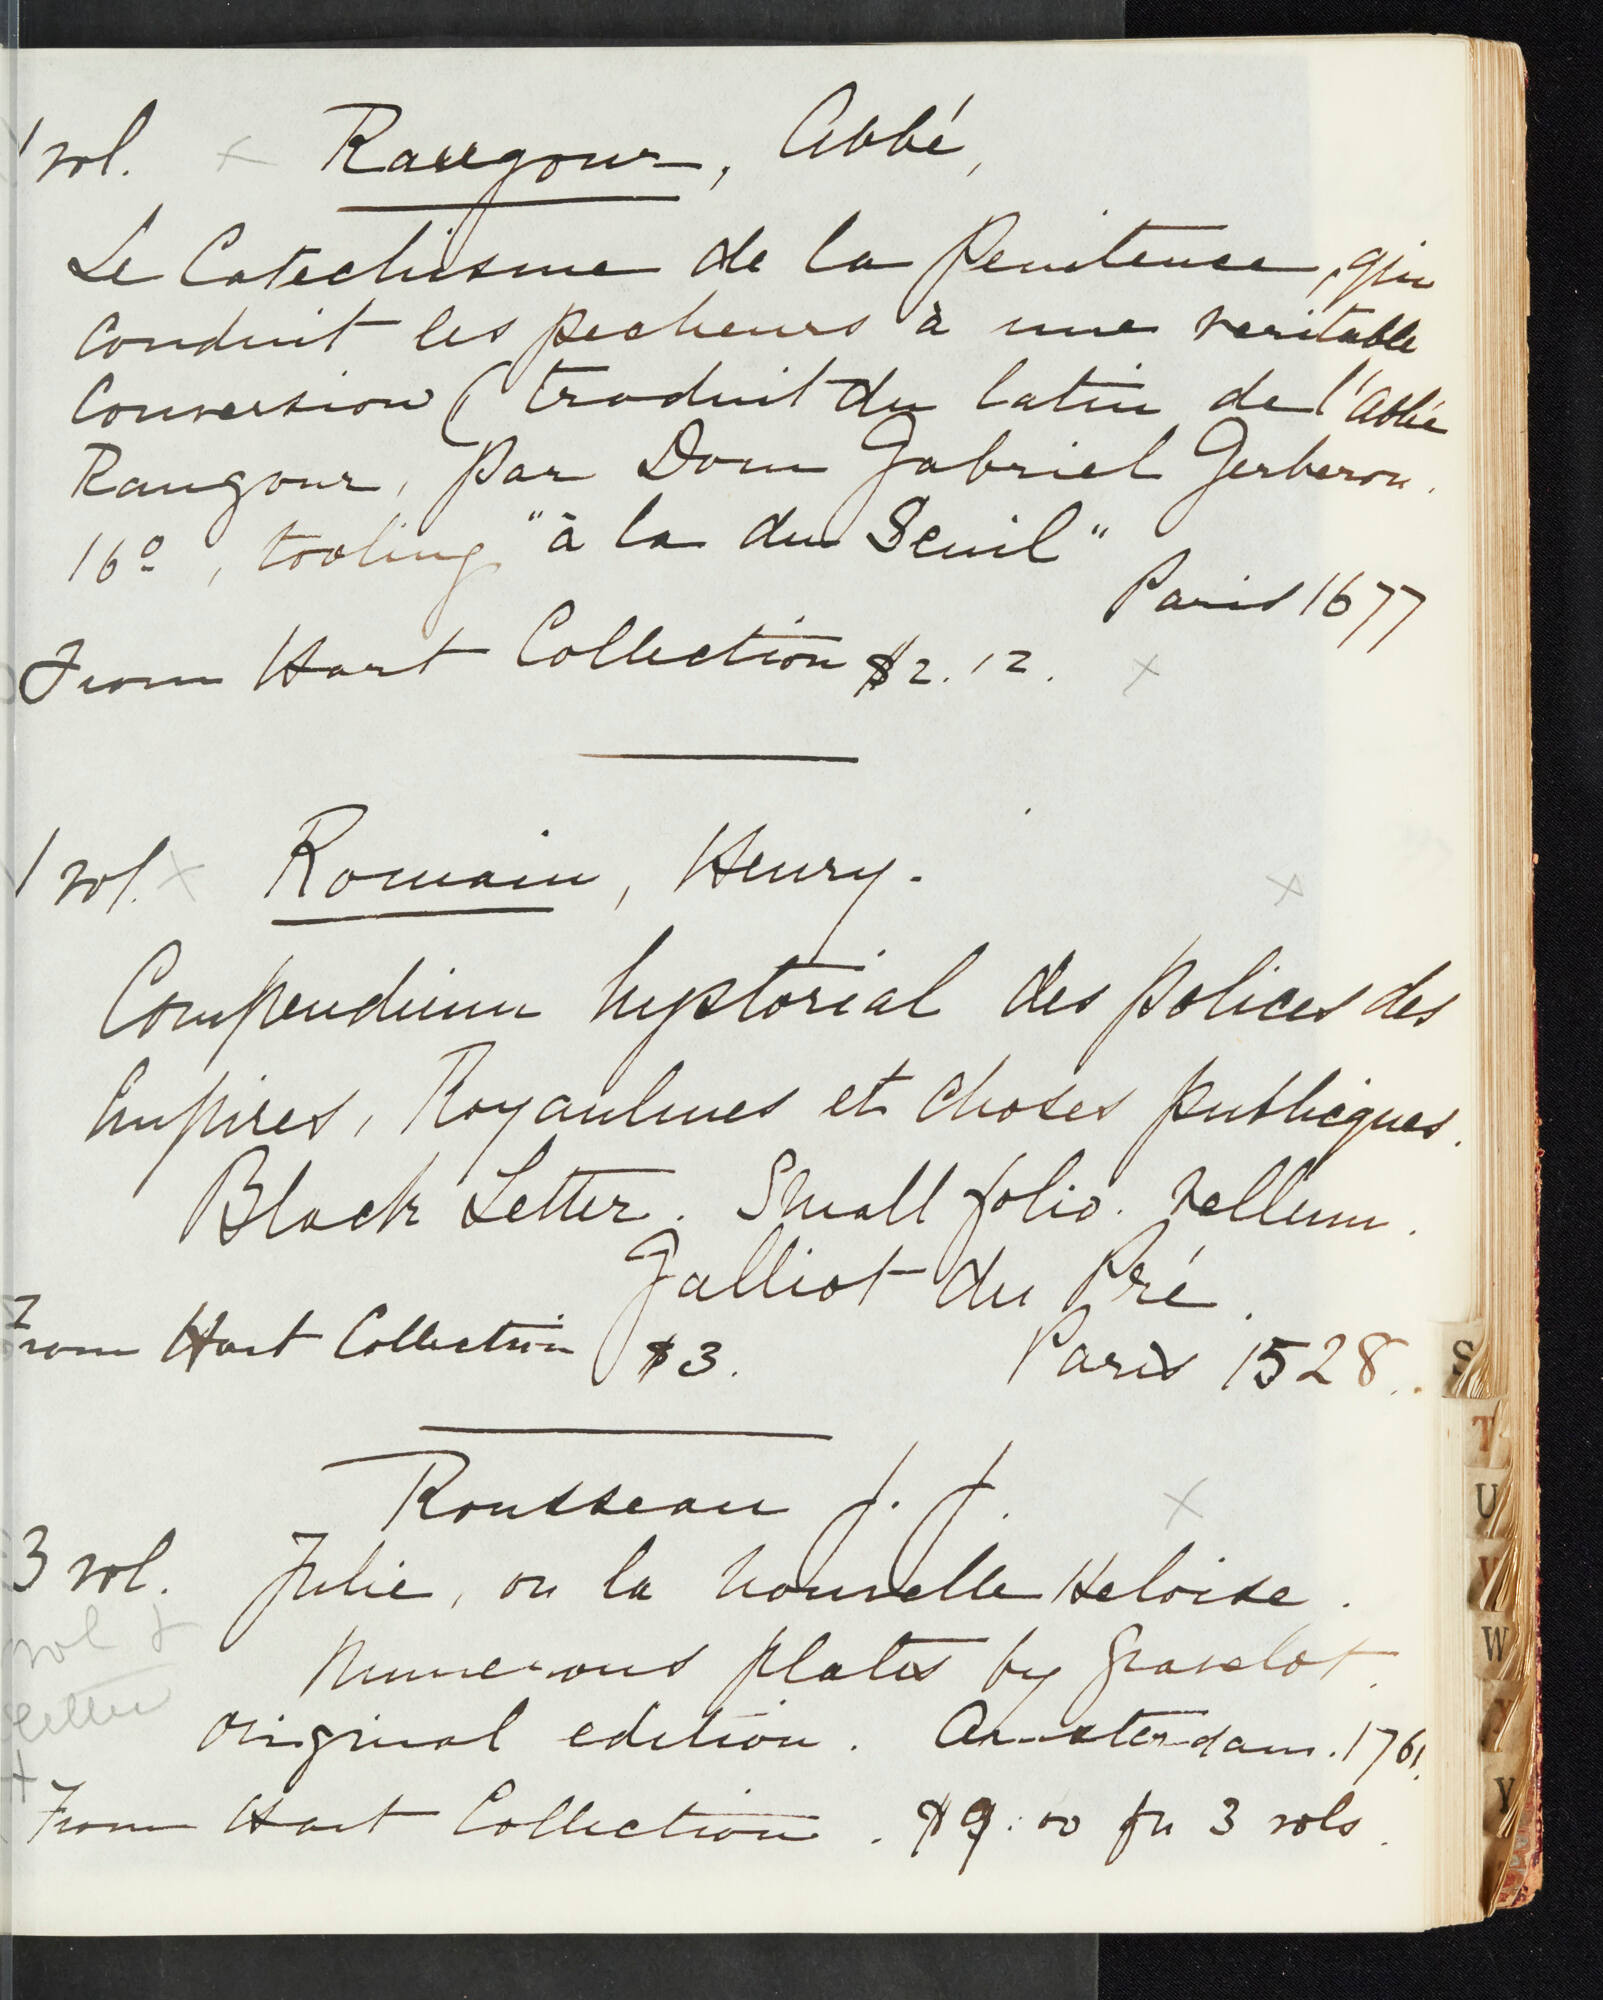 1 vol. x Raugour, Abbé,
Le Catechisme de la penitence, qui
conduit les pecheurs à une veritable
conversion (traduit du latin de l'Abbé
Raugour, par Dom Gabriel Gerberon.
16º, tooling "à la du Seuil"
Paris 1677
From Hart Collection $2.12. x
1 vol. x Romain, Henry.
x
Compendium hystorial des polices des
Empires, Royaulmes et choses publicques.
Black Letter. Small folio. vellum.
Galliot du Pré.
From Hart Collection $3. Paris 1528.
Rousseau J. J. x
3 vol. Julie, ou la nouvelle Heloise.
vol &
letter
numerous plates by Gravelot.
x
original edition. Amsterdam. 1761.
From Hart Collection. $9.00 for 3 vols.
S
T
U
V
W
X
Y